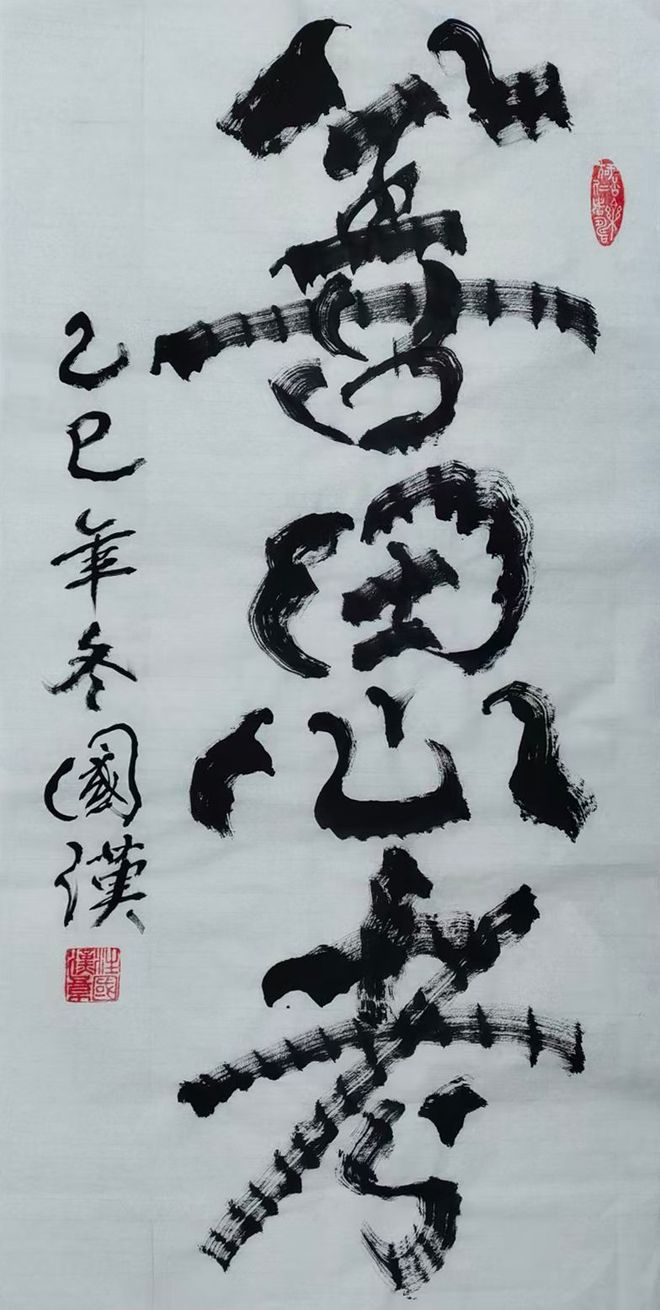 善思考
乙巳年冬國漢